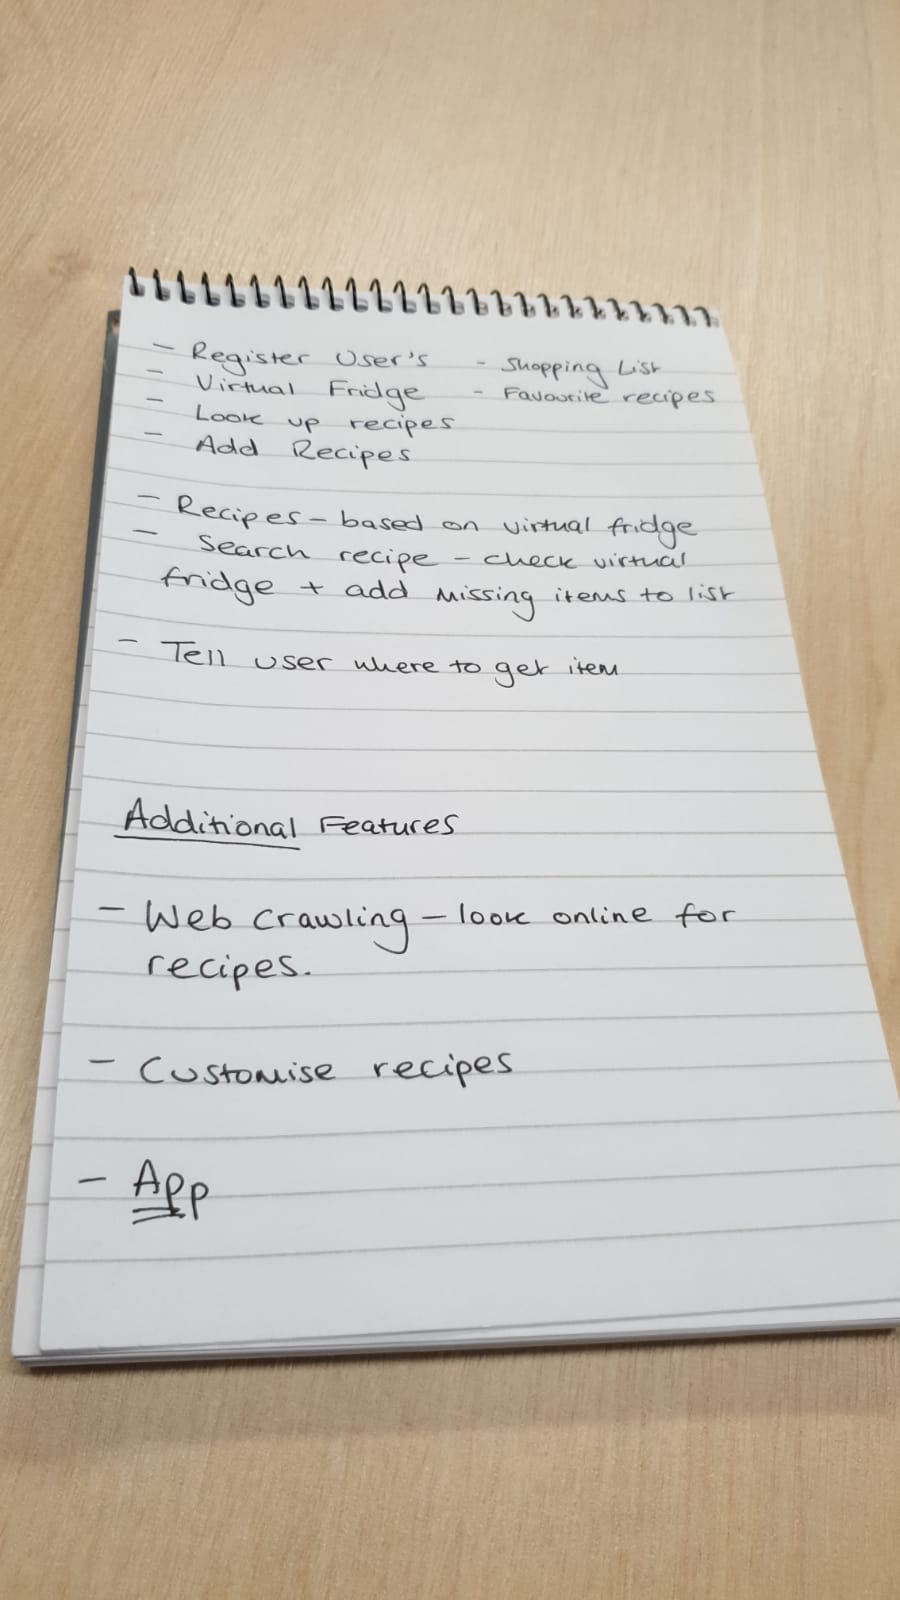 - Register User's - Shopping List
- Virtual Fridge - Favourite recipes
- Look up recipes
- Add Recipes
- Recipes - based on virtual fridge
- Search recipe - check virtual
fridge + add missing items to list
- Tell user where to get item
Additional Features
- Web crawling - look online for
recipes.
- Customise recipes
- App